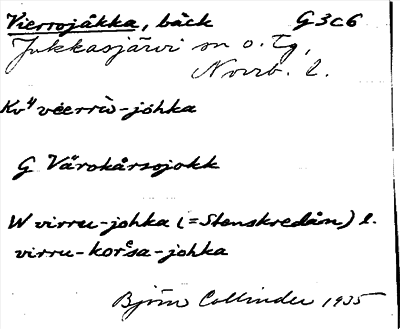 Vierrojåkka, bäck G3c6
Jukkasjärvi sn o. Tg,
Norrb. l.
Kv 4 vēerrìo-johka
G Värokårsojokk
W virru-johka (=Stenskredån) l.
virru-korᵉsa-johka
Björn Collinder 1935